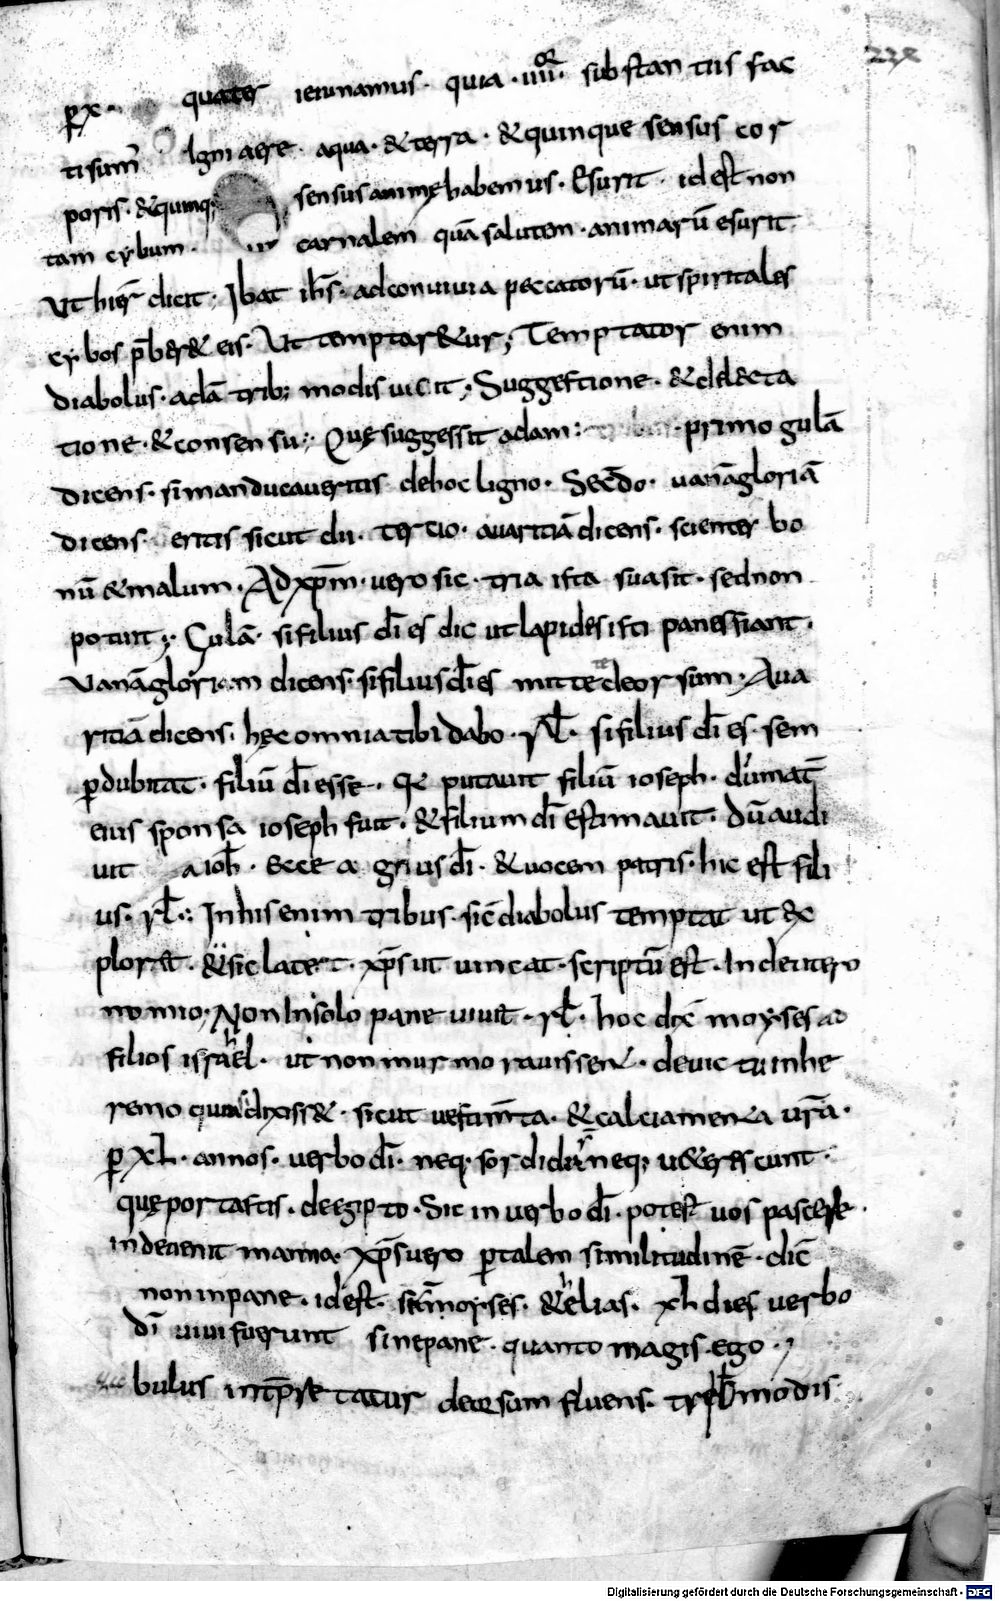 ꝑ x · quater ieiunamus · quia · iiii^or · substantiis fac
ti sum̄ Igni aere · aqua · & terra · & quinque sensus cor
poris · & quinq; sensus animę habemus · Esurit · id est non
tam cybum · carnalem quā salutem · animarū esurit ·
Ut hieř dicit · Ibat ih̄s · ad conuiuia peccatorū · ut spiritales
cybos p̄ber& eis · Ut temptar&ur ; Temptator enim
diabolus · adā trib; modis uicit ; Suggestione · & delecta
tione · & consensu ; Quę suggessit adam : · primo gulā
dicens · si manducaueritis de hoc ligno · Secdo · uanā gloriā
dicens · eritis sicut dii · tertio · auaritiā dicens · scienter bo
nū & malum · Ad xp̄m · uero sic · tria ista suasit · sed non
potuit ; Gulā · si filius dī es dic ut lapides isti panes fiant ·
Uanā gloriam dicens · si filius dī es mitte te deorsum · Aua
ritiā dicens · hęc omnia tibi dabo · rł · si filius dī es · sem
ꝑ dubitat · filiū dī esse · & putauit filiū ioseph · dum mat̄
eius sponsa ioseph fuit · & filium dī estimauit · dū audi
uit a ioh̄ · ecce agnus dī · & uocem patris · hic est fili
us · rł · : In his enim tribus · sic diabolus temptat ut ex
plor& · & sic later& · xp̄s ut uincat · scriptū est · In deutero
nomio · Non In solo pane uiuit · rł · hoc dix̄ moyses ad
filios israhel · ut non murmorauissent · de uictu in he
remo quasi dixiss& · sicut uestim̄ta · & calciamenta ur̄a ·
ꝑ XL · annos · uerbo dī · neq; sordidant̄ neq; u&erescunt ·
quę portastis · de egipto · Sic in uerbo dī · potest uos pascere
in deuenit manna · xp̄s uero ꝑ talem similitudinē · dic̄
non in pane · id est · si moyses · & helias · xl dies uerbo
dī uiui fuerunt sine pane · quanto magis · ego · ;
bulus int̄p̄tatur deorsum fluens · modis
Digitalisierung gefördert durch die Deutsche Forschungsgemeinschaft · DFG